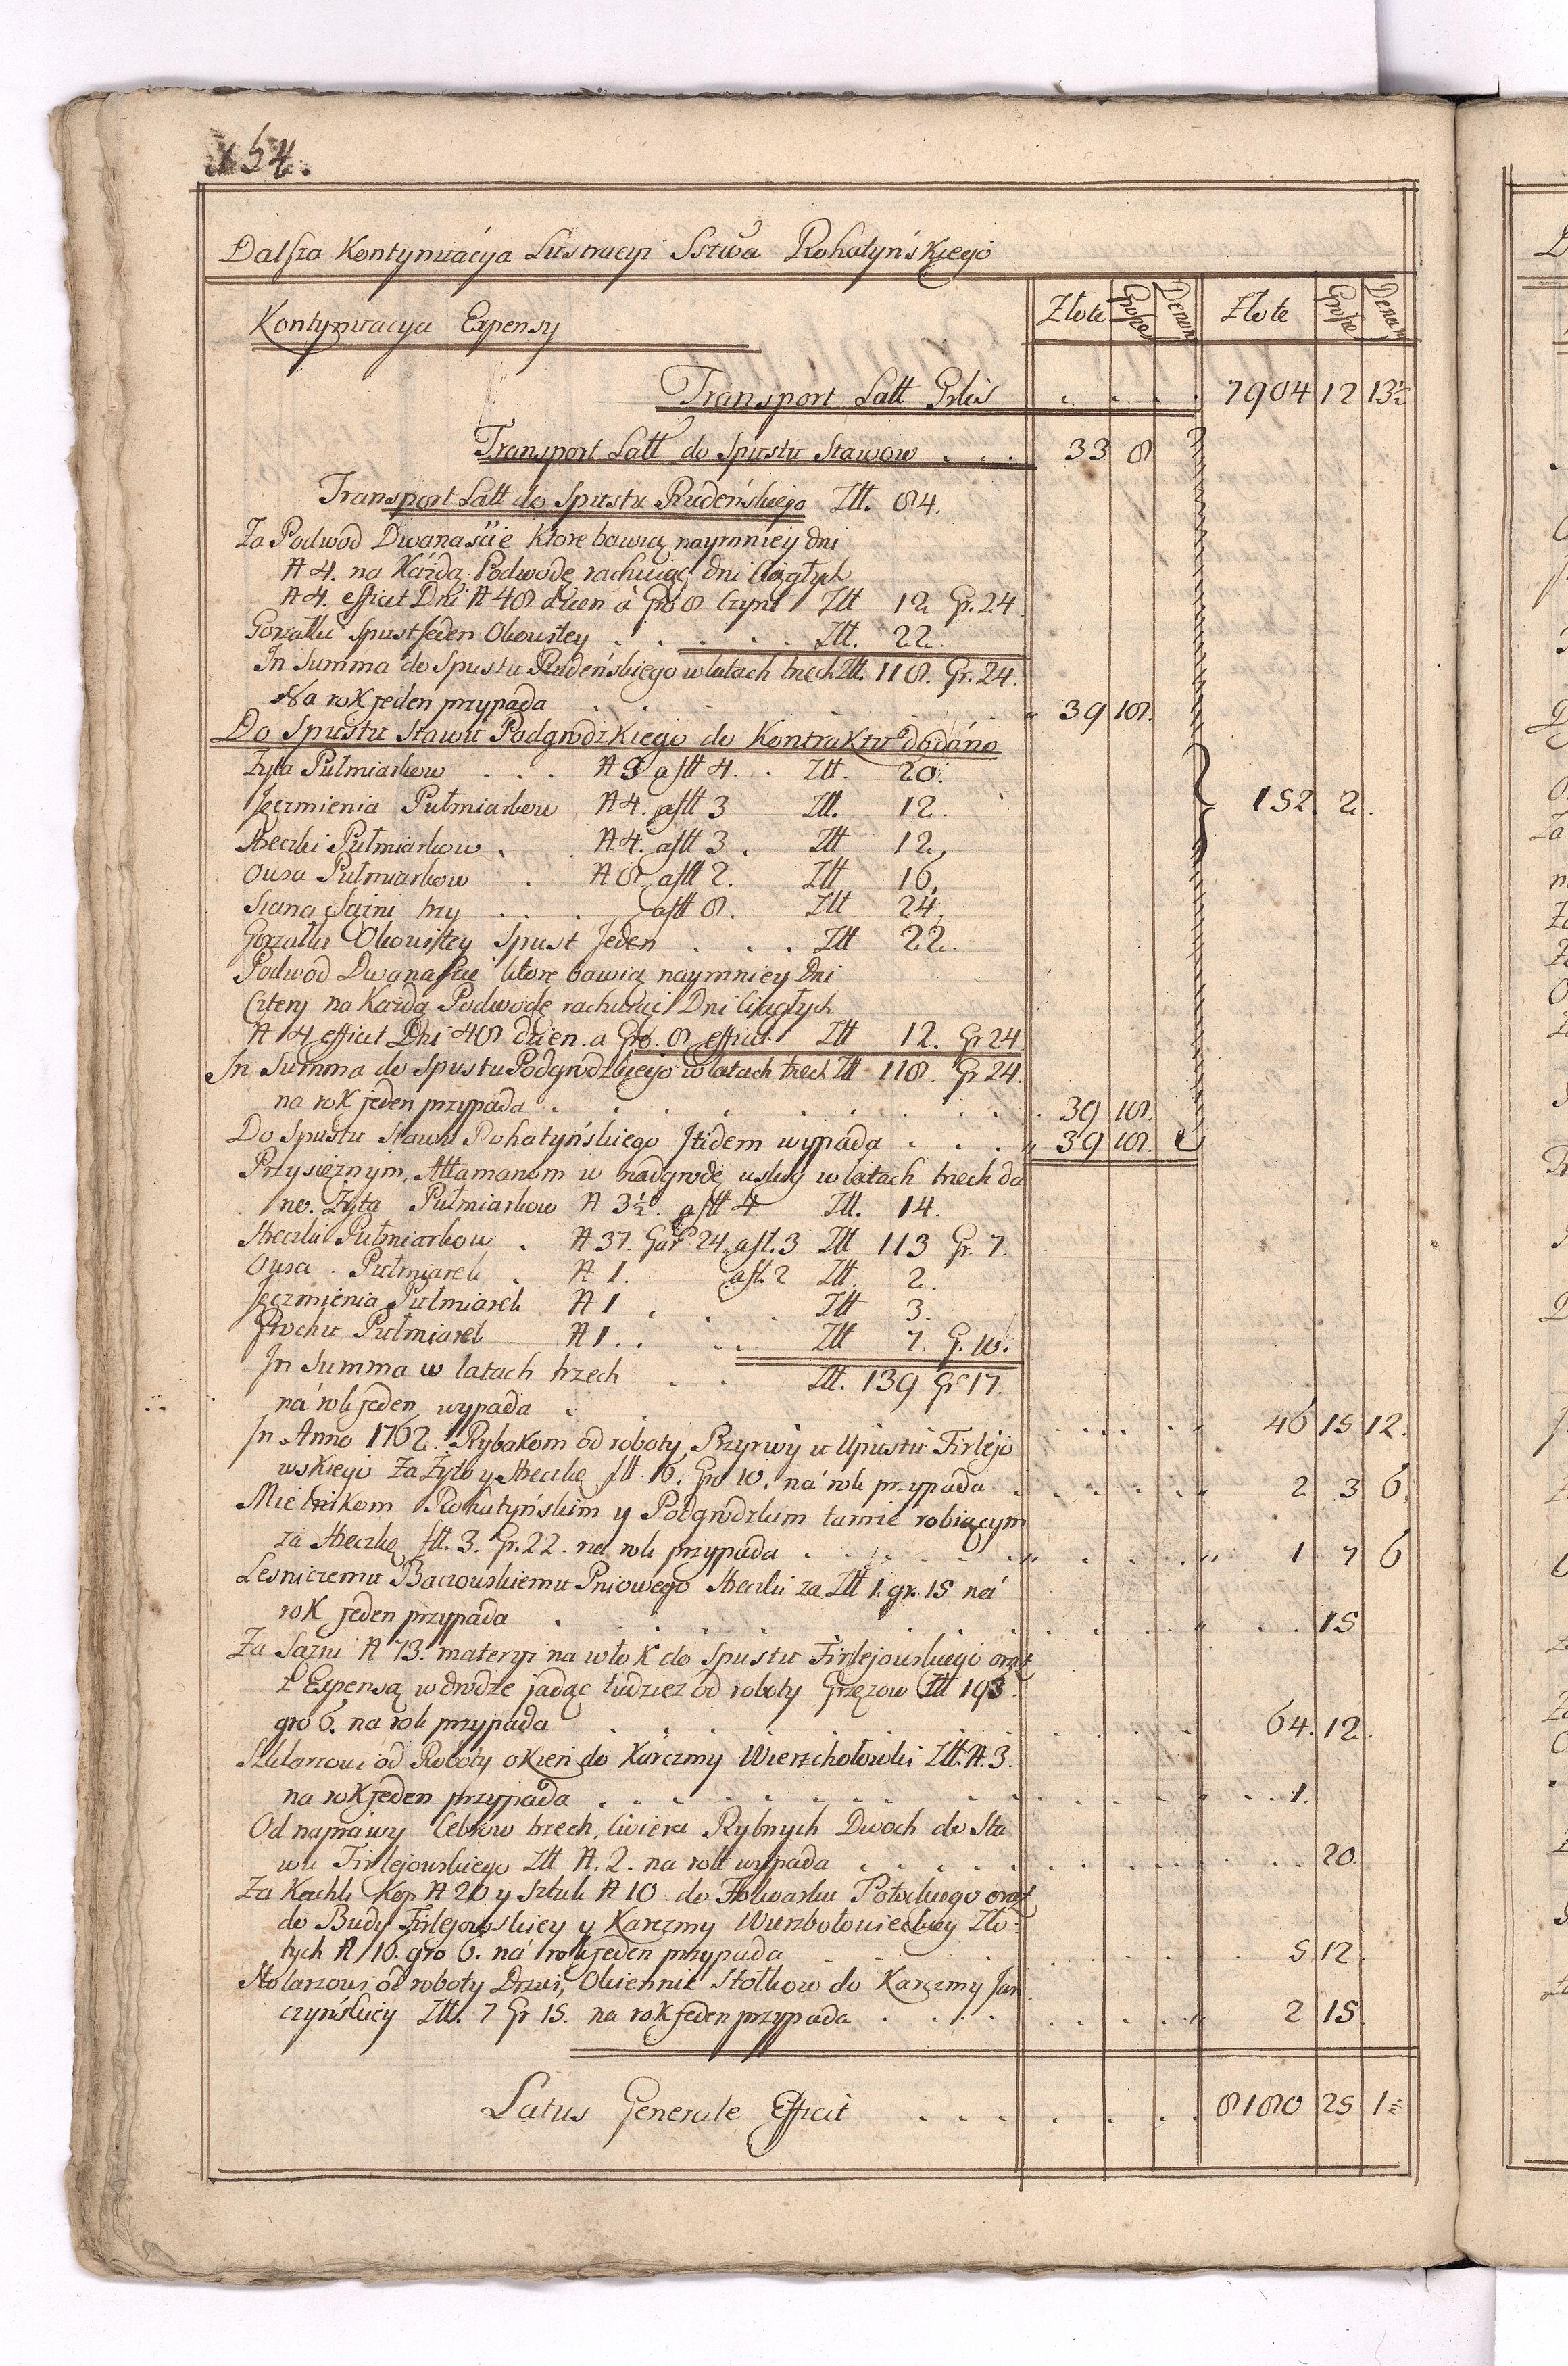 154.
Dalsza Kontynuacya Lustracyi Sstwa Rohatyńskiego
Kontynuacya Expensy Złote Grosze Denar Złote Grosze Denar
Transport Latt Gnlis . . . . 7904 12 13½
Transport Latt do Spustu Stawow . . . 33 8
Transport Latt do Spustu Rudeńskiego Złł. 84.
Za Podwod Dwanascie ktore bawią naymniey dni
N 4. na Każdą Podwodę rachuiąc dni Ciągłych
N 4. efficit Dni N 48 dzien a Gro 8 Czyni Złł 12 Gr. 24
Gorzałki Spust Jeden Okowitey . . . . . Złł. 22.
In Summa do Spustu Rudeńskiego w latach trzech Złł. 118. Gr. 24.
Na rok jeden przypada . . . . . 39 18.
Do Spustu Stawu Podgrodzkiego do Kontraktu dodano
Żyta Pułmiarkow . . . N 5 a fłł 4. . Złł. 20.
Jęczmienia Pułmiarkow N 4. a fłł 3 Złł. 12. 152. 2.
Hreczki Pułmiarkow . . N 4. a fłł 3 . Złł 12.
Owsa Pułmiarkow . N 8. a fłł 2. Złł 16.
Siana Sążni trzy . . . a fłł 8. Złł 24.
Gorzałki Okowitey Spust Jeden . . . Złł 22.
Podwod Dwanascie ktore bawią naymniey Dni
Cztery na Każdą Podwodę rachuiąc Dni Ciągłych
N 4 efficit Dni 48 dzien a Gro. 8 efficit Złł 12. Gr 24
In Summa do Spustu Podgrodzkiego w latach trzech Złł 118. Gr 24.
na rok jeden przypada . . . . . . . . 39 18.
Do Spustu Stawu Rohatyńskiego Itidem wypada . . . . 39 18.
Przysiężnym, Attamanom w nadgrodę usług w latach trzech da
no. Żyta Pułmiarkow N 3½. a fłł 4. Złł. 14.
Hreczki Pułmiarkow . N 37. Gar 24. a fł. 3 Złł 113 Gr. 7.
Owsa . Pułmiarek . N 1. a fł. 2 Złł. 2.
Jęczmienia Pułmiarek N 1 . . . Złł 3.
Grochu Pułmiarek N 1. . . . . Złł 7. G. 10.
In Summa w latach trzech . . Złł. 139 Gr 17.
na rok jeden wypada . . . . . . 46 15 12.
In Anno 1762. Rybakom od roboty Przyrwy u Upustu Firlejo
wskiego Za Żyto y Hreczkę fłł 6. Gro 10. na rok przypada . . . . . 2 3 6.
Mielnikom Rohatyńskim y Podgrodzkim tamie robiącym
za Hreczkę fłł. 3. Gr. 22. na rok przypada . . . . . . 1 7 6
Lesniczemu Baczowskiemu Pniowego Hreczki za Złł 1. gr. 15 na
rok jeden przypada . . . . . . 15
Za Sążni N 73. materyi na włok do Spustu Firlejowskiego oraz
z Expensą w drodze jadąc tudzież od roboty Grzęzow Złł 193.
gro 6. na rok przypada . . . . . . 64. 12.
Szklarzowi od Roboty okien do Karczmy Wierzchołowki Złł. N. 3.
na rok jeden przypada . . . . . . 1.
Od naprawy Cebrow trzech, Cwierci Rybnych Dwoch do Sta
wu Firlejowskiego Złł N. 2. na rok wypada . . . . . 20.
Za Kachli Kop N 20 y sztuk N 10 do Folwarku Potockiego oraz
do Budy Firlejowskiey y Karczmy Wierzbołowieckiey Zło
tych N 16. gro 6. na rok jeden przypada . . . . 5 12.
Stolarzowi od roboty Drzwi, Okiennic Stołkow do Karczmy Jan
czyńskiey Złł. 7 Gr 15. na rok jeden przypada . . . . 2 15.
Latus Generale Efficit . . . . 8180 25 1½